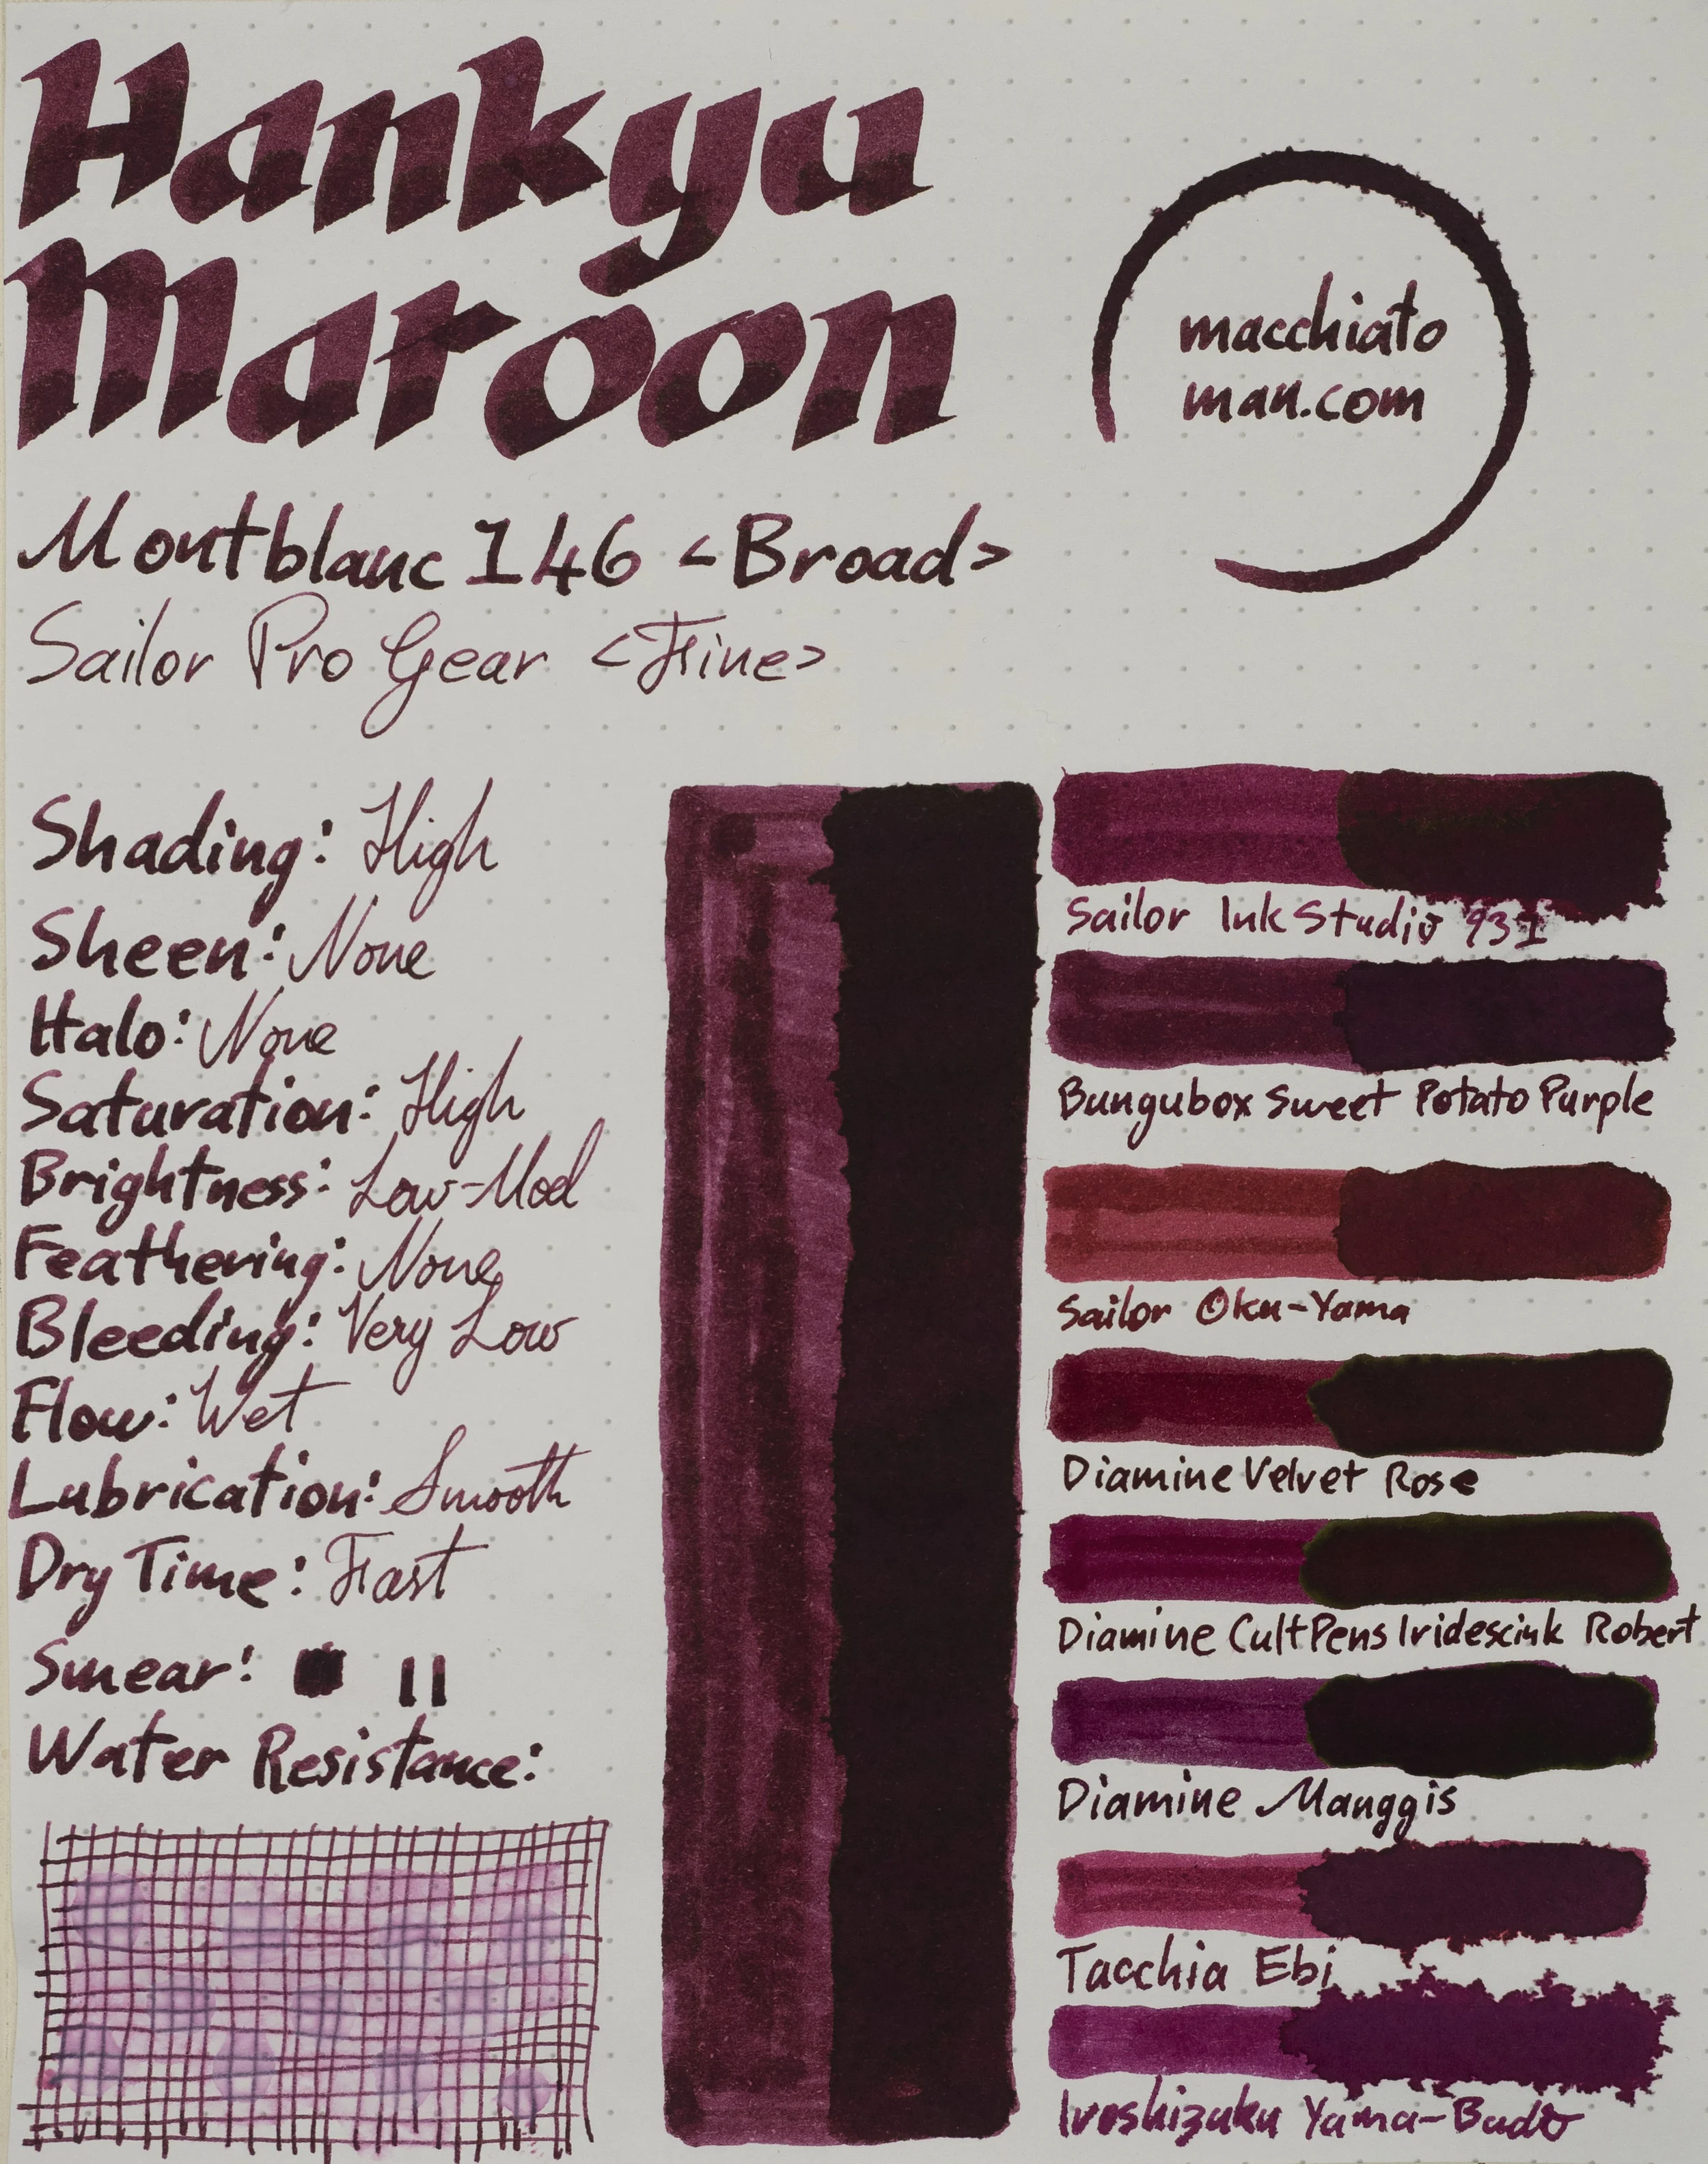 Hankyu
Maroon
macchiato
man.com
Montblanc 146 <Broad>
Sailor Pro Gear <Fine>
Shading: High
Sheen: None
Halo: None
Saturation: High
Brightness: Low-Mod
Feathering: None
Bleeding: Very Low
Flow: Wet
Lubrication: Smooth
Dry Time: Fast
Smear:
Water Resistance:
Sailor Ink Studio 931
Bungubox Sweet Potato Purple
Sailor Oku-Yama
Diamine Velvet Rose
Diamine CultPens Iridescink Robert
Diamine Manggis
Tacchia Ebi
Iroshizuku Yama-Budo